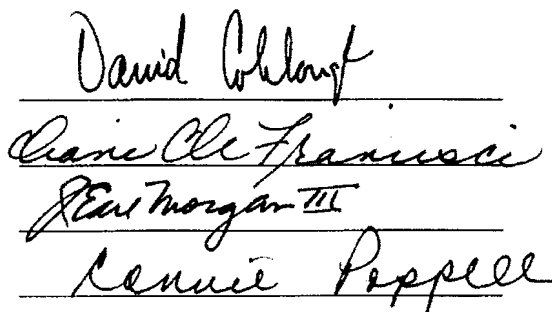 David
Diane DeFrancisci
J Earl Morgan III
Connie Poppell